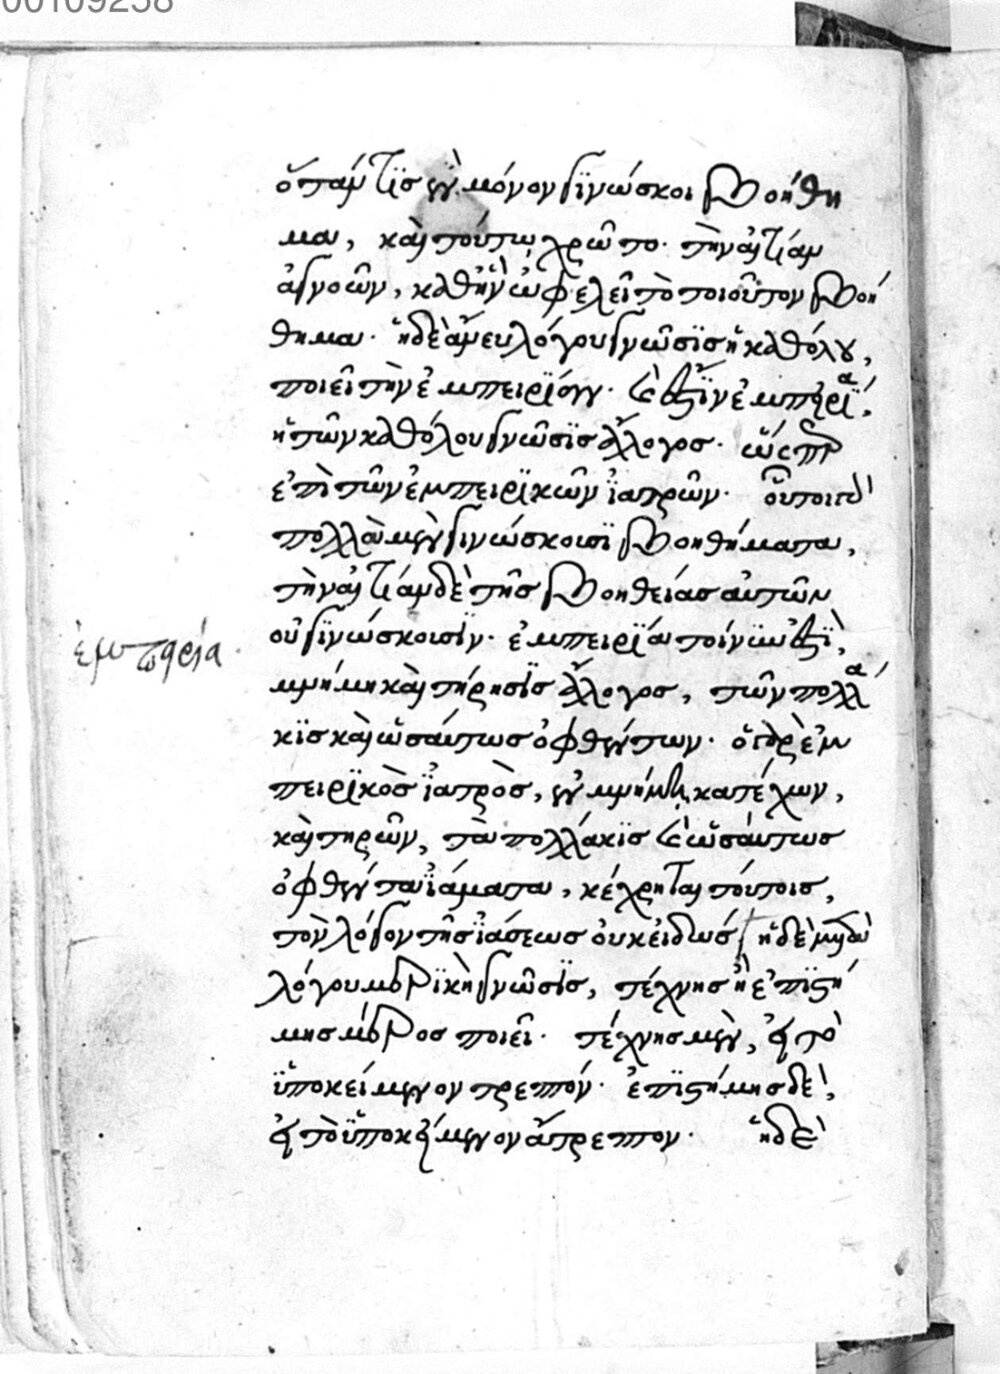 00109258
ὅταν τὶς ἓν μόνον γινώσκοι βοήθη
μα, καὶ τούτω χρῶτο. τὴν αἰτίαν
ἀγνοῶν, καθ' ἣν ὠφελεῖ τὸ τοιοῦτον βοή
θημα. ἡ δὲ ἄνευ λόγου γνῶσις ἡ καθόλου,
ποιεῖ τὴν ἐμπειρίαν. καὶ ἔστιν ἐμπειρία,
ἡ τῶν καθόλου γνῶσις ἄλογος. ὥσπερ
ἐπὶ τῶν ἐμπειρικῶν ἰατρῶν. οὗτοι γὰρ
πολλὰ μὲν γινώσκουσι βοηθήματα,
τὴν αἰτίαν δὲ τῆς βοηθείας αὐτῶν
οὐ γινώσκουσιν. ἐμπειρία τοίνυν ἐστὶ,
ἐμπειρία
μνήμη καὶ τήρησις ἄλογος, τῶν πολλά
κις καὶ ὡσαύτως ὀφθέντων. ὁ γὰρ ἐμ
πειρικὸς ἰατρὸς, ἐν μνήμη κατέχων,
καὶ τηρῶν, τὰ πολλάκις καὶ ὡσαύτως
ὀφθέντα ἰάματα, κέχρηται τούτοις,
τὸν λόγον τῆς ἰάσεως οὐκ εἰδώς / ἡ δὲ μετὰ
λόγου μερικὴ γνῶσις, τέχνης ἢ ἐπιστή
μης μέρος ποιεῖ. τέχνης μὲν, εἰ τὸ
ὑποκείμενον τρεπτόν. ἐπιστήμης δὲ,
εἰ τὸ ὑποκείμενον ἄτρεπτον. ἡ δὲ